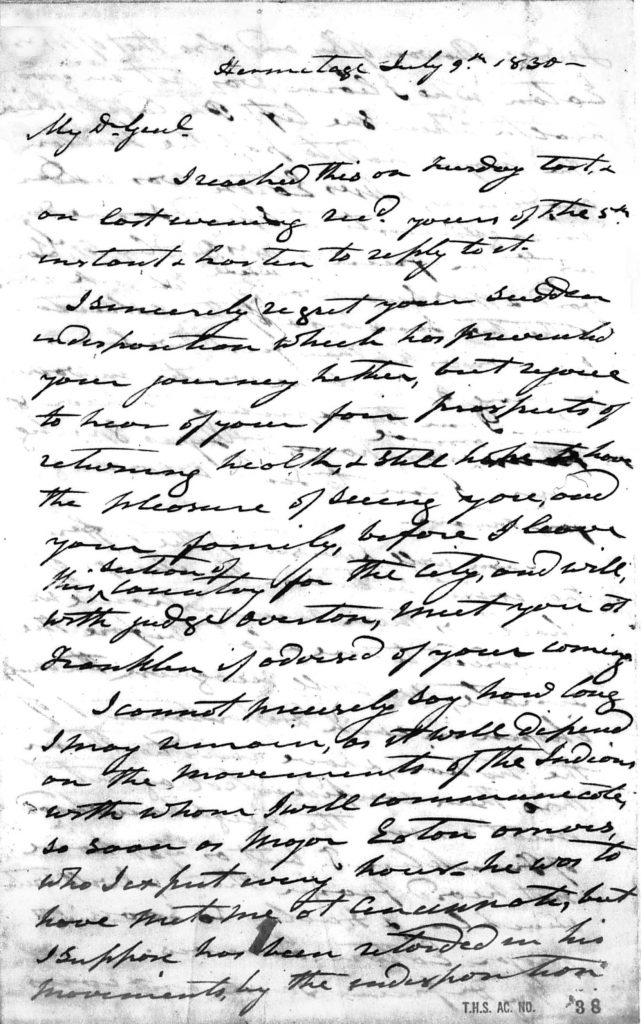 Hermitage July 9th 1830-
My Dr. Genl.
I reached this on Tuesday last, &
on last evening recd. yours of the 5th
instant & hasten to reply to it.
I sincerely regret your sudden
indisposition which has prevented
your journey hether, but rejoice
to hear of your fair prospects of
returning health, & still hope to have
the pleasure of seeing you, and
your family, before I leave
this section of country for the city, and will,
with judge overton, meet you at
Franklin if advised of your coming
I cannot precisely say how long
I may remain, as it will depend
on the movements of the Indians
with whom I will communicate,
so soon as Major Eaton arrives,
who I expect every hour- he was to
have met me at Cincinnati, but
I suppose has been retarded in his
movements, by the indisposition
T.H.S. AC. NO. 38